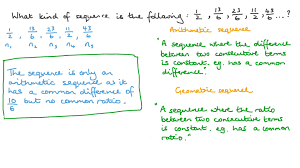 What kind of sequence is the following: 1/2, 13/6, 23/6, 11/2, 43/6 ...?
1/2, 13/6, 23/6, 11/2, 43/6
n₁ n₂ n₃ n₄ n₅
Arithmetic sequence
"A sequence where the difference
between two consecutive terms
is constant. eg. has a common
difference."
The sequence is only an
arithmetic sequence as it
has a common difference of
10/6 but no common ratio.
Geometric sequence
"A sequence where the ratio
between two consecutive terms is
constant. eg. has a common
ratio."